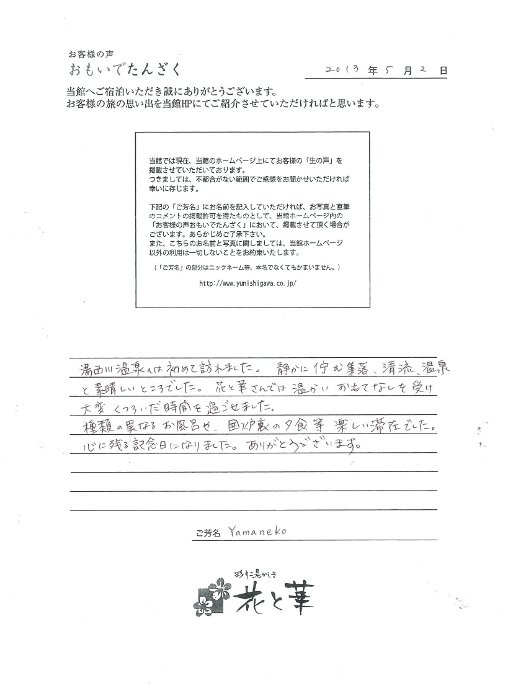 お客様の声
おもいでたんざく
2013 年 5 月 2 日
当館へご宿泊いただき誠にありがとうございます。
お客様の旅の思い出を当館HPにてご紹介させていただければと思います。
当館では現在、当館のホームページ上にてお客様の「生の声」を
掲載させていただいております。
つきましては、不都合がない範囲でご感想をお聞かせいただければ
幸いに存じます。
下記の「ご芳名」にお名前を記入していただければ、お写真と直筆
のコメントの掲載許可を得たものとして、当館ホームページ内の
「お客様の声おもいでたんざく」において、掲載させて頂く場合が
ございます。あらかじめご了承下さい。
また、こちらのお名前と写真に関しましては、当館ホームページ
以外の利用は一切しないことをお約束いたします。
(「ご芳名」の部分はニックネーム等、本名でなくてもかまいません。)
http://www.yunishigawa.co.jp/
湯西川温泉へは初めて訪れました。静かに佇む集落、清流、温泉
と素晴しいところでした。花と華さんでは温かいおもてなしを受け
大変くつろいだ時間を過ごせました。
種類の異なるお風呂や、囲炉裏の夕食等楽しい滞在でした。
心に残る記念日になりました。ありがとうございます。
ご芳名 Yamaneko
花と華